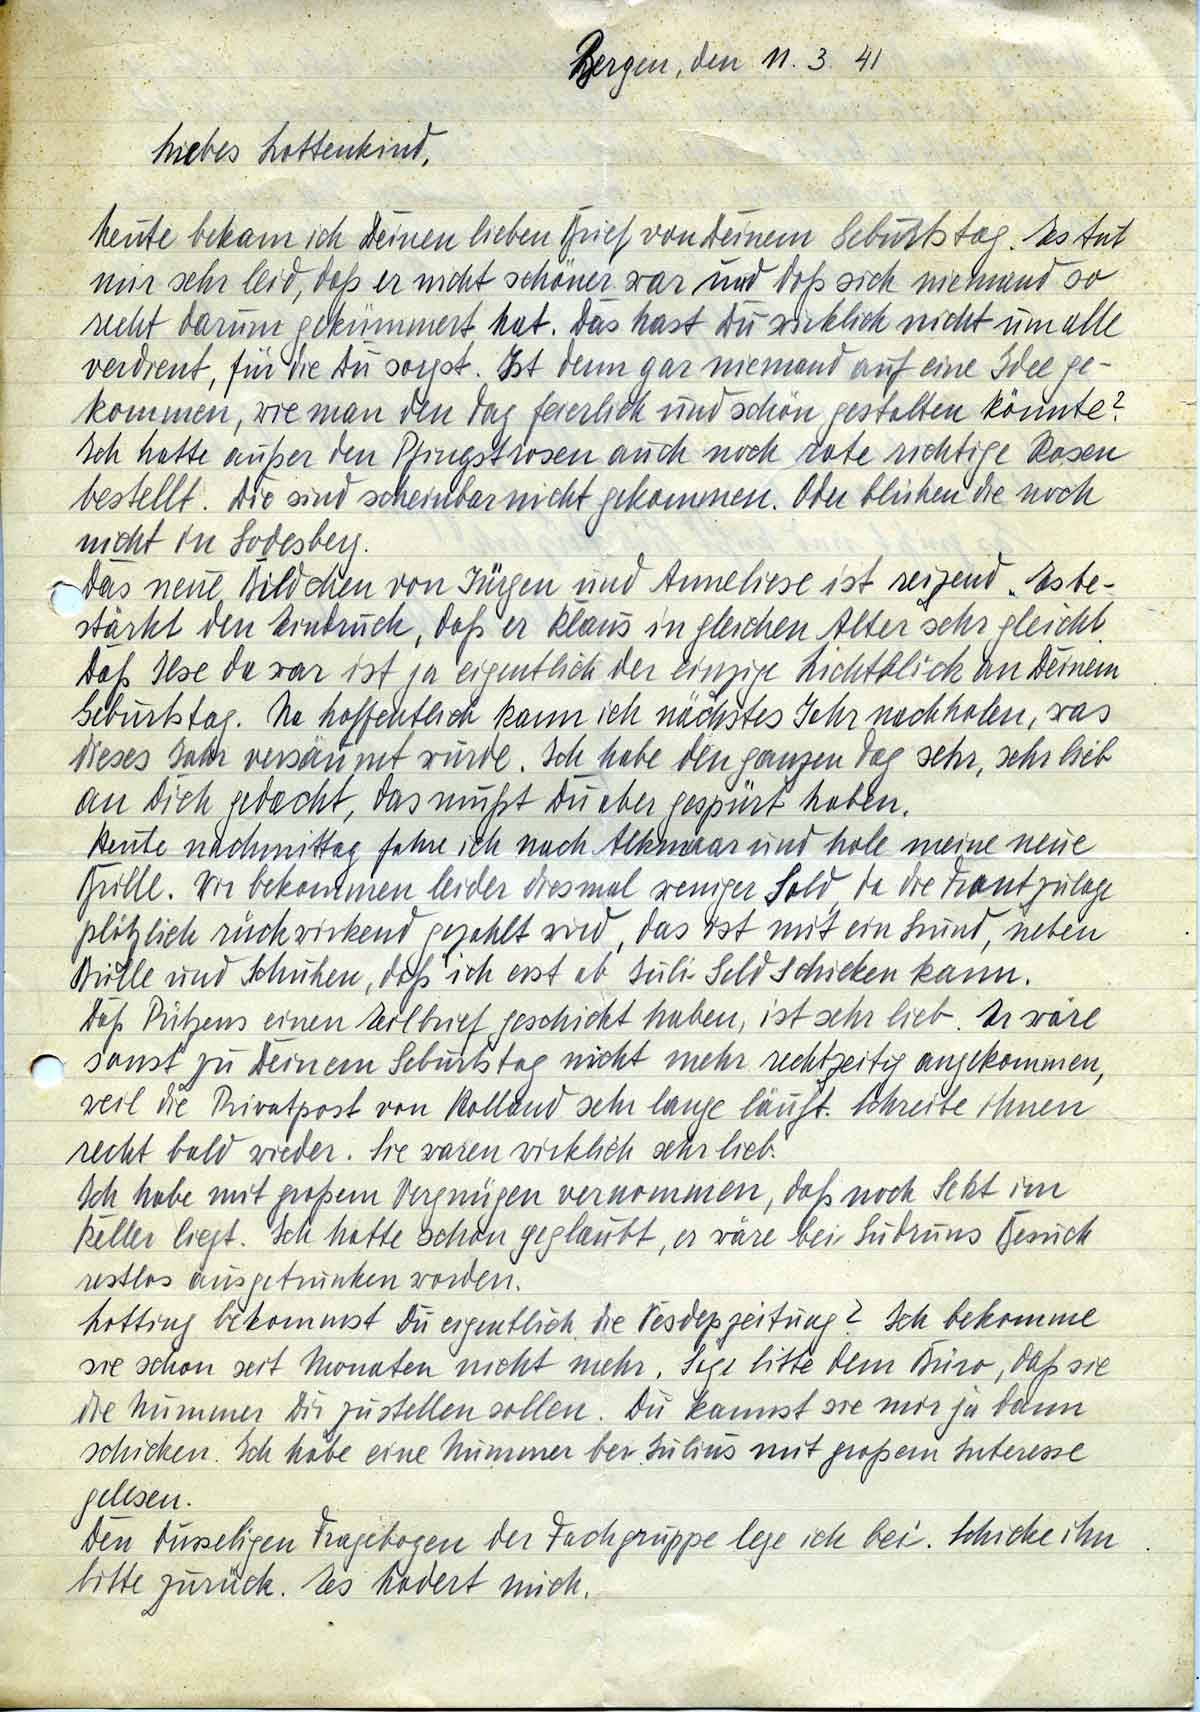 Bergen, den 11. 3. 41
Liebes Lottenkind,
Heute bekam ich Deinen lieben Brief von Deinem Geburtstag. Es tut
mir sehr leid, daß er nicht schöner war und daß sich niemand so
recht darum gekümmert hat. Das hast Du wirklich nicht um alle
verdient, für die Du sorgst. Ist denn gar niemand auf eine Idee ge-
kommen, wie man den Tag feierlich und schön gestalten könnte?
Ich hatte außer den Pfingstrosen auch noch rote richtige Rosen
bestellt. Die sind scheinbar nicht gekommen. Oder blühen die noch
nicht in Godesberg.
Das neue Bildchen von Jürgen und Anneliese ist reizend. Es be-
stärkt den Eindruck, daß er Klaus in gleichen Alter sehr gleicht.
Daß Ilse da war ist ja eigentlich der einzige Lichtblick an Deinem
Geburtstag. Na hoffentlich kann ich nächstes Jahr nachholen, was
dieses Jahr versäumt wurde. Ich habe den ganzen Tag sehr, sehr lieb
an Dich gedacht, das mußt Du aber gespürt haben.
Heute nachmittag fahre ich nach Alkmaar und hole meine neue
Brille. Wir bekommen leider diesmal weniger Sold, da die Frontzulage
plötzlich rückwirkend gezahlt wird, das ist mit ein Grund, neben
Brille und Schuhen, daß ich erst ab Juli Geld schicken kann.
Daß Pützens einen Eilbrief geschickt haben, ist sehr lieb. Er wäre
sonst zu Deinem Geburtstag nicht mehr rechtzeitig angekommen,
weil die Privatpost von Holland sehr lange läuft. Schreibe ihnen
recht bald wieder. Sie waren wirklich sehr lieb.
Ich habe mit großem Vergnügen vernommen, daß noch Sekt im
Keller liegt. Ich hatte schon geglaubt, er wäre bei Gudruns Besuch
restlos ausgetrunken worden.
Lotting bekommst Du eigentlich die Vesdepzeitung? Ich bekomme
sie schon seit Monaten nicht mehr. Sage bitte dem Büro, daß sie
die Nummer Dir zustellen sollen. Du kannst sie mir ja dann
schicken. Ich habe eine Nummer bei Julius mit großem Interesse
gelesen.
Den dusseligen Fragebogen der Fachgruppe lege ich bei. Schicke ihn
bitte zurück. Es mich.